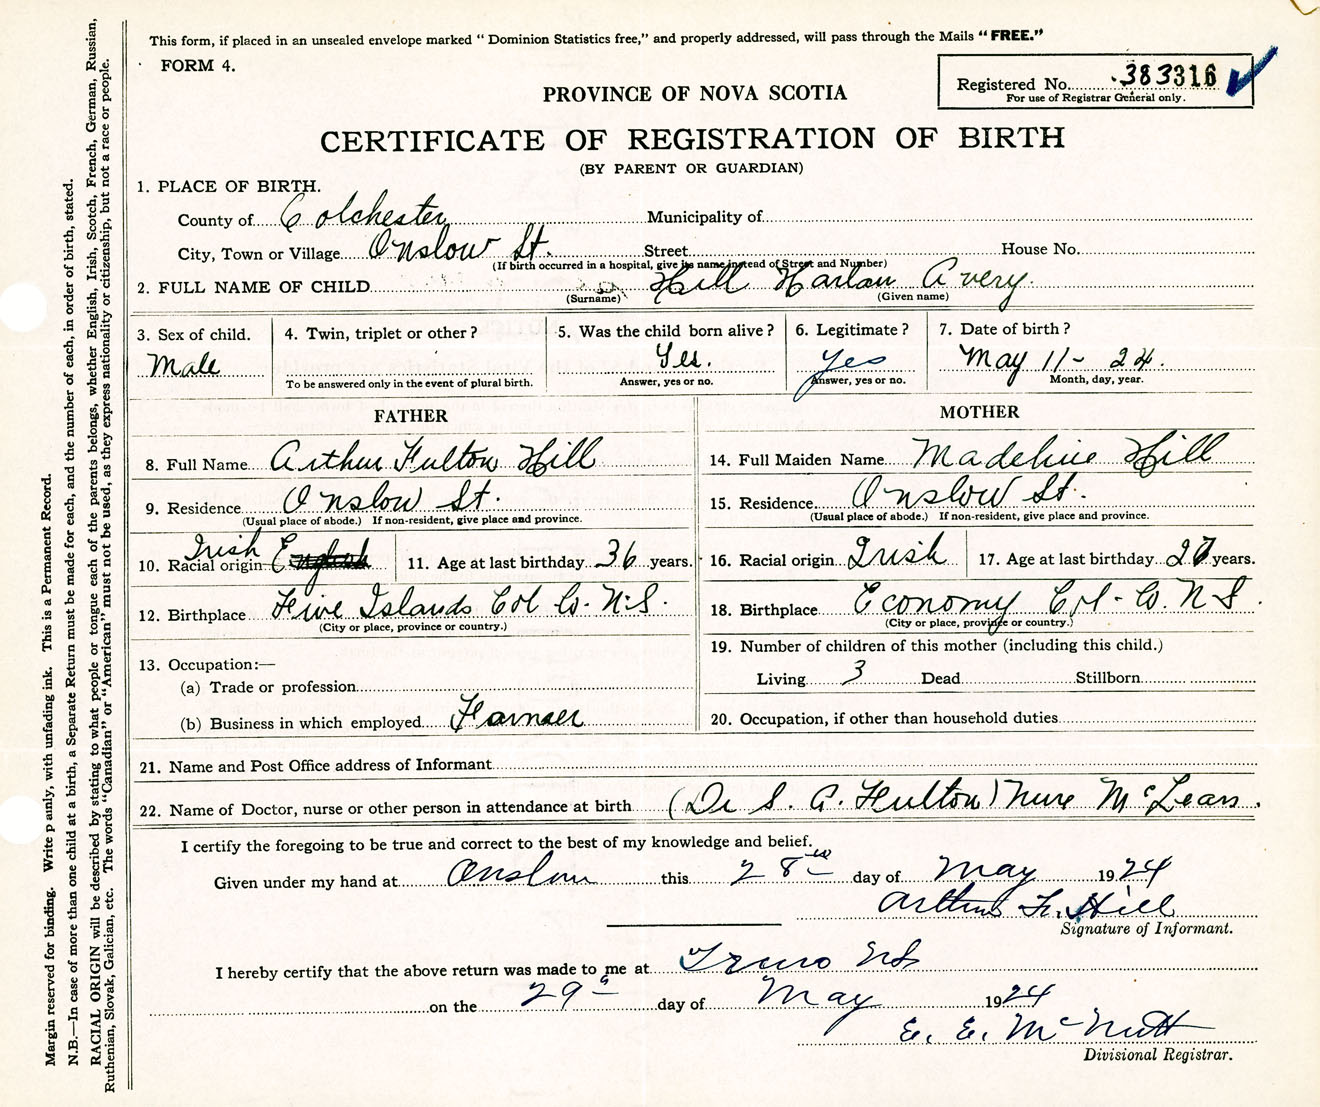 This form, if placed in an unsealed envelope marked “ Dominion Statistics free,” and properly addressed, will pass through the Mails “ FREE.”
FORM 4.
Registered No. 383316
For use of Registrar General only.
PROVINCE OF NOVA SCOTIA
CERTIFICATE OF REGISTRATION OF BIRTH
(BY PARENT OR GUARDIAN)
1. PLACE OF BIRTH.
County of Colchester Municipality of
City, Town or Village Onslow St. Street House No.
(If birth occurred in a hospital, give its name instead of Street and Number)
2. FULL NAME OF CHILD Hill Harlan Avery.
(Surname) (Given name)
3. Sex of child. 4. Twin, triplet or other? 5. Was the child born alive? 6. Legitimate? 7. Date of birth?
Male Yes. Yes May 11- 24.
To be answered only in the event of plural birth. Answer, yes or no. Answer, yes or no. Month, day, year.
FATHER
8. Full Name Arthur Fulton Hill
9. Residence Onslow St.
(Usual place of abode.) If non-resident, give place and province.
Irish
10. Racial origin English 11. Age at last birthday 36 years.
12. Birthplace Five Islands Col Co. N.S.
(City or place, province or country.)
13. Occupation:—
(a) Trade or profession
(b) Business in which employed Farmer
MOTHER
14. Full Maiden Name Madeline Hill
15. Residence Onslow St.
(Usual place of abode.) If non-resident, give place and province.
16. Racial origin Irish 17. Age at last birthday 27 years.
18. Birthplace Economy Col- Co. N S.
(City or place, province or country.)
19. Number of children of this mother (including this child.)
Living 3 Dead Stillborn
20. Occupation, if other than household duties
21. Name and Post Office address of Informant
22. Name of Doctor, nurse or other person in attendance at birth (Dr S. A. Fulton) Nure McLean.
I certify the foregoing to be true and correct to the best of my knowledge and belief.
Given under my hand at Onslow this 28 day of May 1924
Arthur F. Hill
Signature of Informant.
I hereby certify that the above return was made to me at Truro NS
on the 29 day of May 1924
E. E. McNutt
Divisional Registrar.
Margin reserved for binding. Write p ainly, with unfading ink. This is a Permanent Record.
N.B.—In case of more than one child at a birth, a Separate Return must be made for each, and the number of each, in order of birth, stated.
RACIAL ORIGIN will be described by stating to what people or tongue each of the parents belongs, whether English, Irish, Scotch, French, German, Russian,
Ruthenian, Slovak, Galician, etc. The words “Canadian” or “American” must not be used, as they express nationality or citizenship, but not a race or people.